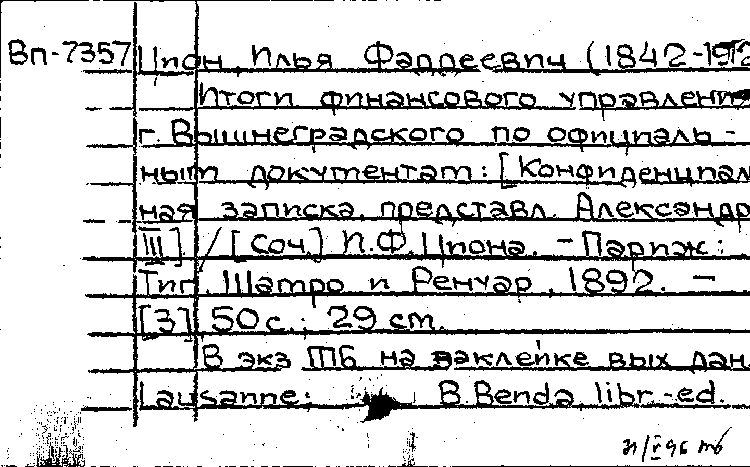 Вп-7357 Цион, Илья Фаддеевич (1842-1912
Итоги финансового управлени
г. Вышнеградского по официаль-
ным документам: [Конфиденциал
ная записка, представл. Александр
III] / [Соч.] И.Ф. Циона. - Париж:
Тип. Шатро и Ренуар, 1892. -
[3], 50 с.; 29 cm.
В экз ТБ на наклейке вых дан.
Lausanne: B. Benda, libr.-ed.